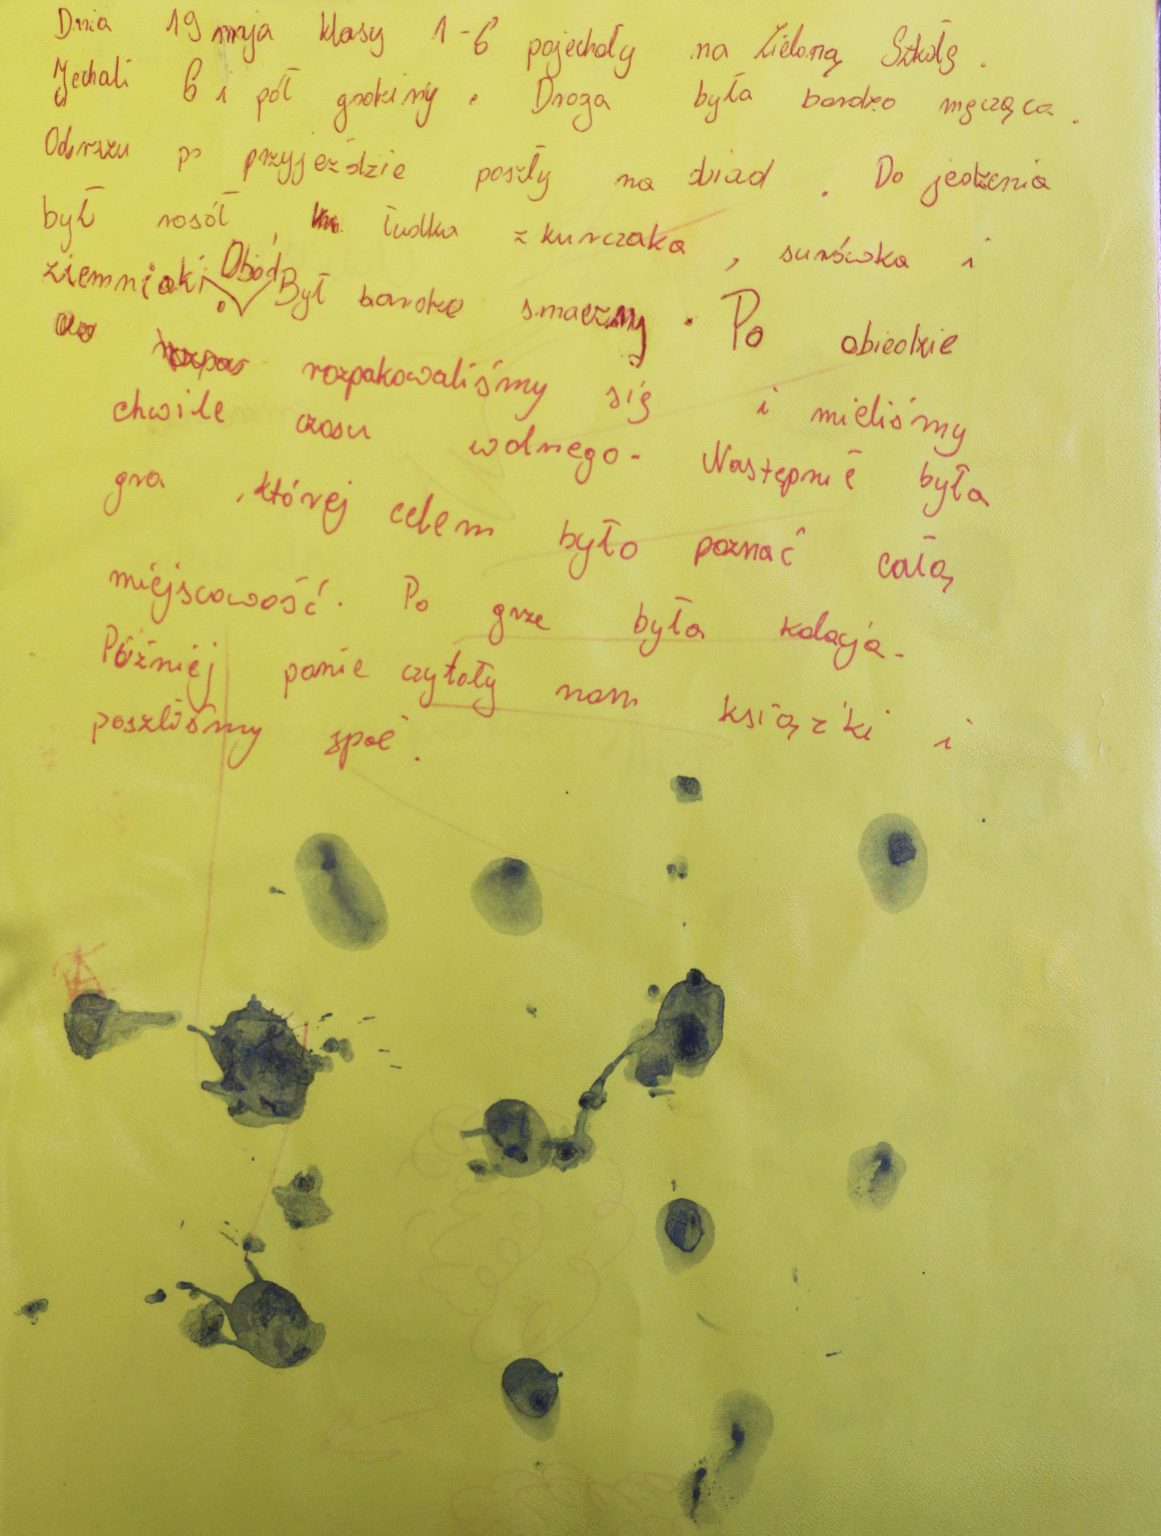 Dnia 19 maja klasy 1-6 pojechały na Zieloną Szkołę.
Jechali 6 i pół godziny. Droga była bardzo męcząca.
Odrazu po przyjeździe poszły na obiad. Do jedzenia
był rosół, łudka z kurczaka, surówka i
ziemniaki. Obiad Był bardzo smaczny. Po obiedzie
rozpakowaliśmy się i mieliśmy
chwile czasu wolnego. Następnie była
gra, której celem było poznać całą
miejscowość. Po grze była kolacja.
Później panie czytały nam książki i
poszliśmy spać.